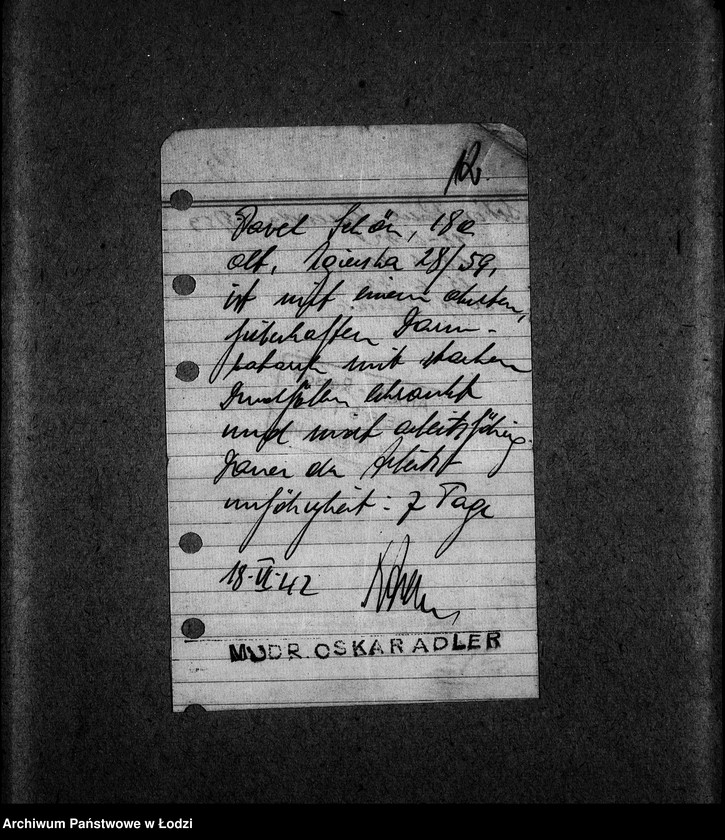 Pavel Schön, 18 a
alt, Zgierska 28/59,
ist mit einem akuten,
fieberhaften Darm-
katarrh mit starken
Durchfällen erkrankt
und nicht arbeitsfähig.
Dauer der Arbeits
unfähigkeit: 7 Tage
18.VI.42
MUDR. OSKAR ADLER
Archiwum Państwowe w Łodzi